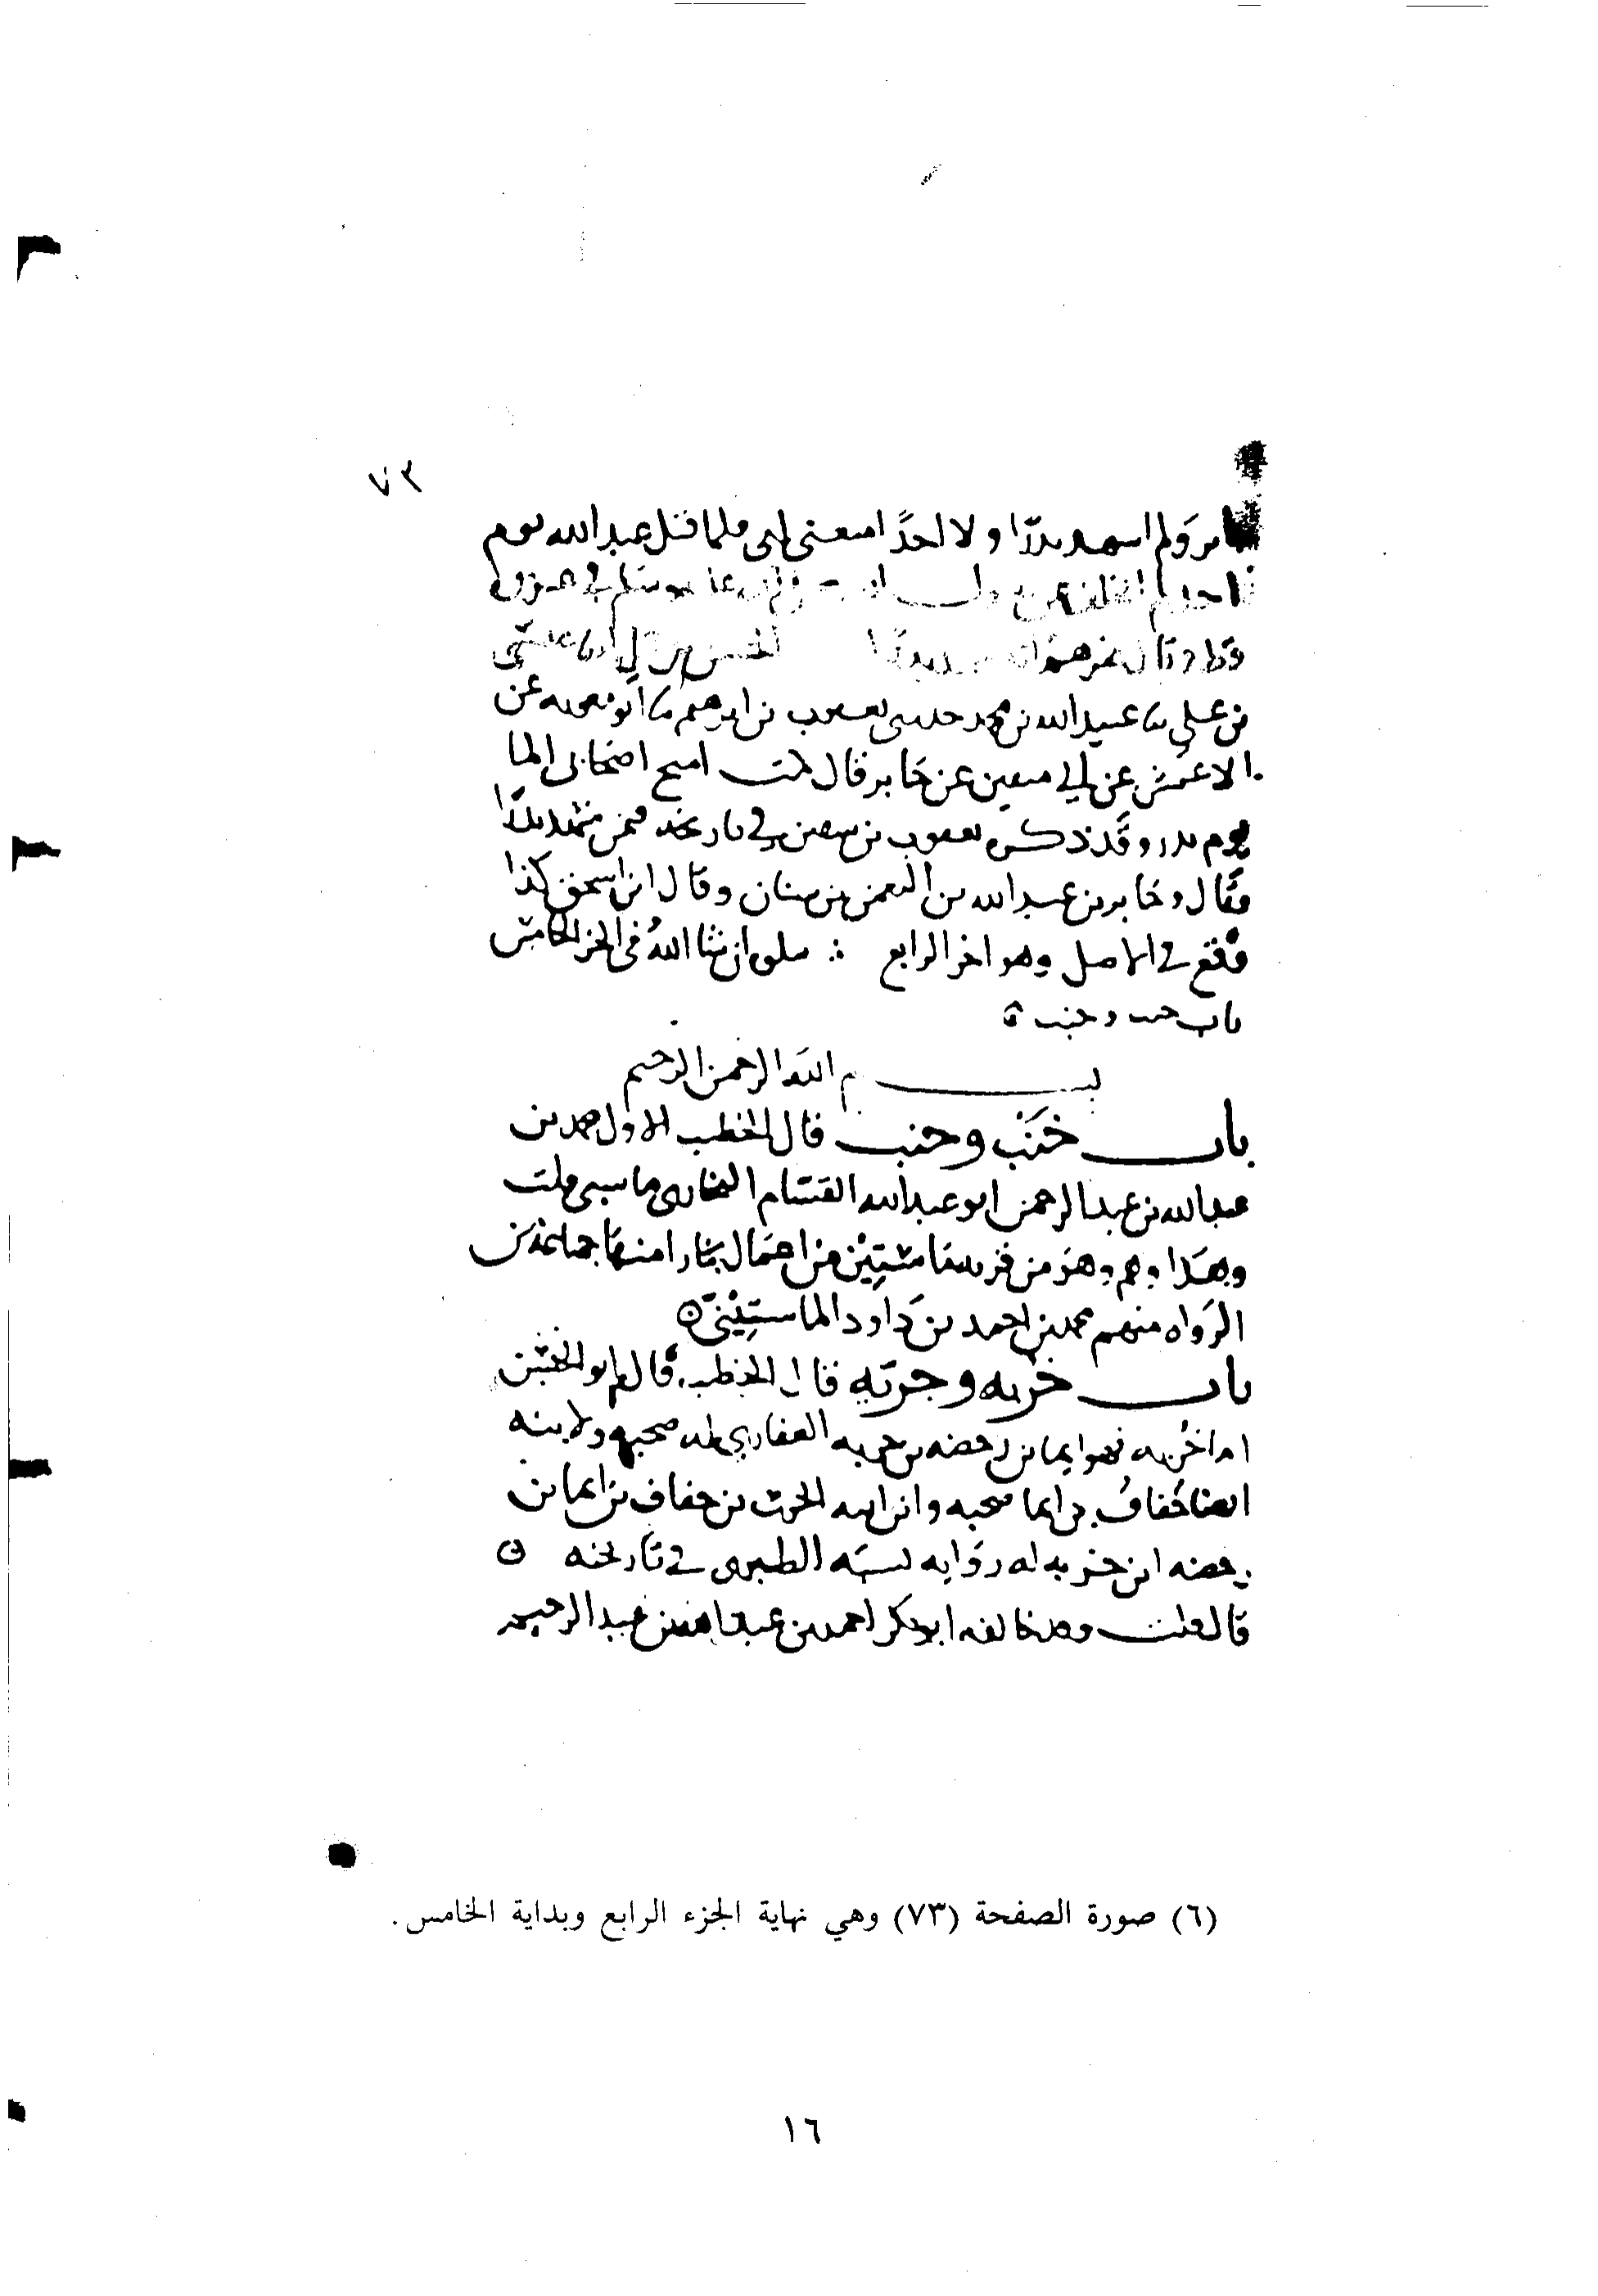 ٧٣
ولم اشهد بدرًا ولا احدًا منعني ابي فلما قتل عبد الله يوم
احد لم اتخلف عن وسلم في غزوه
قط وقال غيرهم
بن علي ثنا عبيد الله بن محمد حدثني يعقوب بن ابرهيم ثنا ابو معويه عن
الاعمش عن ابي سفين عن جابر قال كنت اميح اصحابي الما
يوم بدر وقد ذكر يعقوب بن سفين في تاريخه فيمن شهد بدرًا
فقال وجابر بن عبد الله بن النعمن بن سنان وقال ابن اسحق كذا
وقع في الاصل وهو اخر الرابع ∴ يتلوه ان شا الله في الجز الخامس
باب وخنب ه
بسم الله الرحمن الرحيم
باب خَنَب وخنب قال الخطيب الاول حمد بن
عبد الله بن عبد الرحمن ابو عبد الله القسام البخاري ما ستي قلت
وهذا وهم وهو من قريه ماستِيْن من اعمال بخارا منها جماعه من
الرواه منهم محمد بن احمد بن داود الماستِيْني ه
باب خُربه وجربه قال الخطيب قال ابو الحسن
اما خُربه فهو ايما بن رحضه بن خربه الغفاري له صحبه ولابنه
ايضا خُفاف بن ايما صحبه وابن ابنه الحرث بن خفاف بن ايما بن
رحضه ابن خربه له روايه نسبه الطبري في تاريخه ه
قال قلت وقد خالفه ابو بكر احمد بن عبد الله بن عبد الرحيم
(٦) صورة الصفحة (٧٣) وهي نهاية الجزء الرابع وبداية الخامس.
١٦